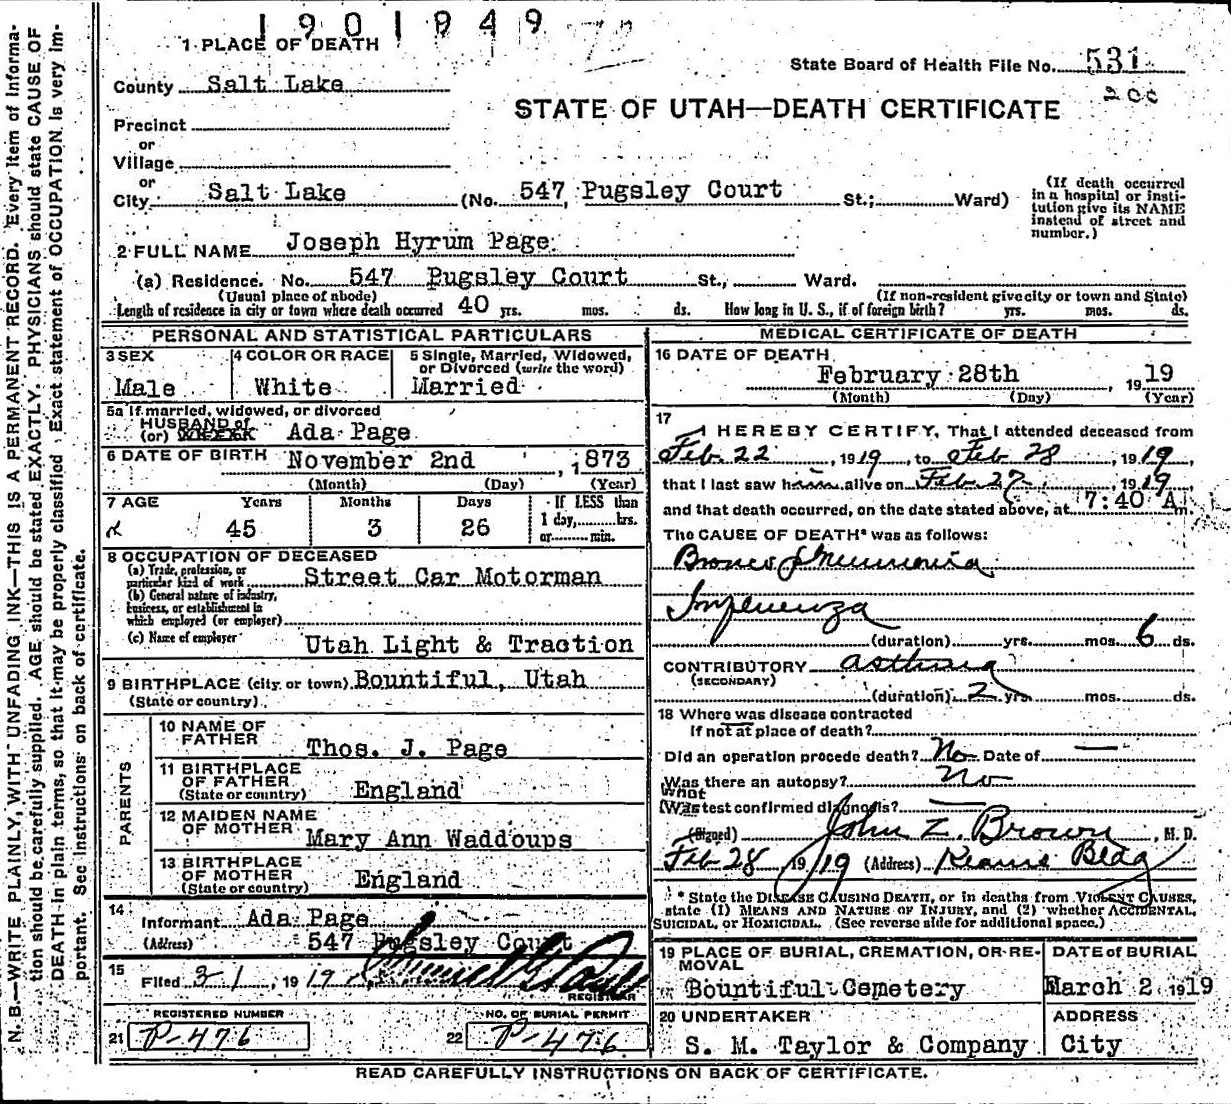 1901849
1 PLACE OF DEATH
State Board of Health File No. 531
200
County Salt Lake
STATE OF UTAH—DEATH CERTIFICATE
Precinct
or
Village
or
City Salt Lake (No. 547 Pugsley Court St.; Ward)
(If death occurred in a hospital or institution give its NAME instead of street and number.)
2 FULL NAME Joseph Hyrum Page
(a) Residence. No. 547 Pugsley Court St., Ward.
(Usual place of abode) (If non-resident give city or town and State)
Length of residence in city or town where death occurred 40 yrs. mos. ds. How long in U. S., if of foreign birth? yrs. mos. ds.
PERSONAL AND STATISTICAL PARTICULARS
3 SEX 4 COLOR OR RACE 5 Single, Married, Widowed, or Divorced (write the word)
Male White Married
5a If married, widowed, or divorced
HUSBAND of
(or) Ada Page
6 DATE OF BIRTH November 2nd, 1873
(Month) (Day) (Year)
7 AGE Years Months Days If LESS than
45 3 26 1 day, hrs.
or min.
8 OCCUPATION OF DECEASED
(a) Trade, profession, or particular kind of work Street Car Motorman
(b) General nature of industry, business, or establishment in which employed (or employer)
(c) Name of employer Utah Light & Traction
9 BIRTHPLACE (city or town) Bountiful, Utah
(State or country)
PARENTS
10 NAME OF FATHER Thos. J. Page
11 BIRTHPLACE OF FATHER England
(State or country)
12 MAIDEN NAME OF MOTHER Mary Ann Waddoups
13 BIRTHPLACE OF MOTHER England
(State or country)
14 Informant Ada Page
(Address) 547 Pugsley Court
15 Filed 3-1, 1919
REGISTRAR
REGISTERED NUMBER NO. OF BURIAL PERMIT
21 P-476 22 P-476
MEDICAL CERTIFICATE OF DEATH
16 DATE OF DEATH
February 28th, 1919
(Month) (Day) (Year)
17 I HEREBY CERTIFY, That I attended deceased from
Feb. 22, 1919, to Feb 28, 1919,
that I last saw him alive on Feb 27, 1919,
and that death occurred, on the date stated above, at 7:40 A m.
The CAUSE OF DEATH* was as follows:
Bronco Pneumonia
Influenza
(duration) yrs. mos. 6 ds.
CONTRIBUTORY asthma
(SECONDARY)
(duration) 2 yrs. mos. ds.
18 Where was disease contracted
If not at place of death?
Did an operation procede death? No Date of —
Was there an autopsy? No
What
(Was test confirmed diagnosis? —
(Signed) John Z. Brown, M. D.
Feb 28 1919 (Address) Kearns Bldg
* State the DISEASE CAUSING DEATH, or in deaths from VIOLENT CAUSES,
state (1) MEANS AND NATURE OF INJURY, and (2) whether ACCIDENTAL,
SUICIDAL, or HOMICIDAL. (See reverse side for additional space.)
19 PLACE OF BURIAL, CREMATION, OR REMOVAL DATE of BURIAL
Bountiful Cemetery March 2 1919
20 UNDERTAKER ADDRESS
S. M. Taylor & Company City
READ CAREFULLY INSTRUCTIONS ON BACK OF CERTIFICATE.
N. B.—WRITE PLAINLY, WITH UNFADING INK—THIS IS A PERMANENT RECORD. Every item of information should be carefully supplied. AGE should be stated EXACTLY. PHYSICIANS should state CAUSE OF DEATH in plain terms, so that it may be properly classified. Exact statement of OCCUPATION is very important. See instructions on back of certificate.